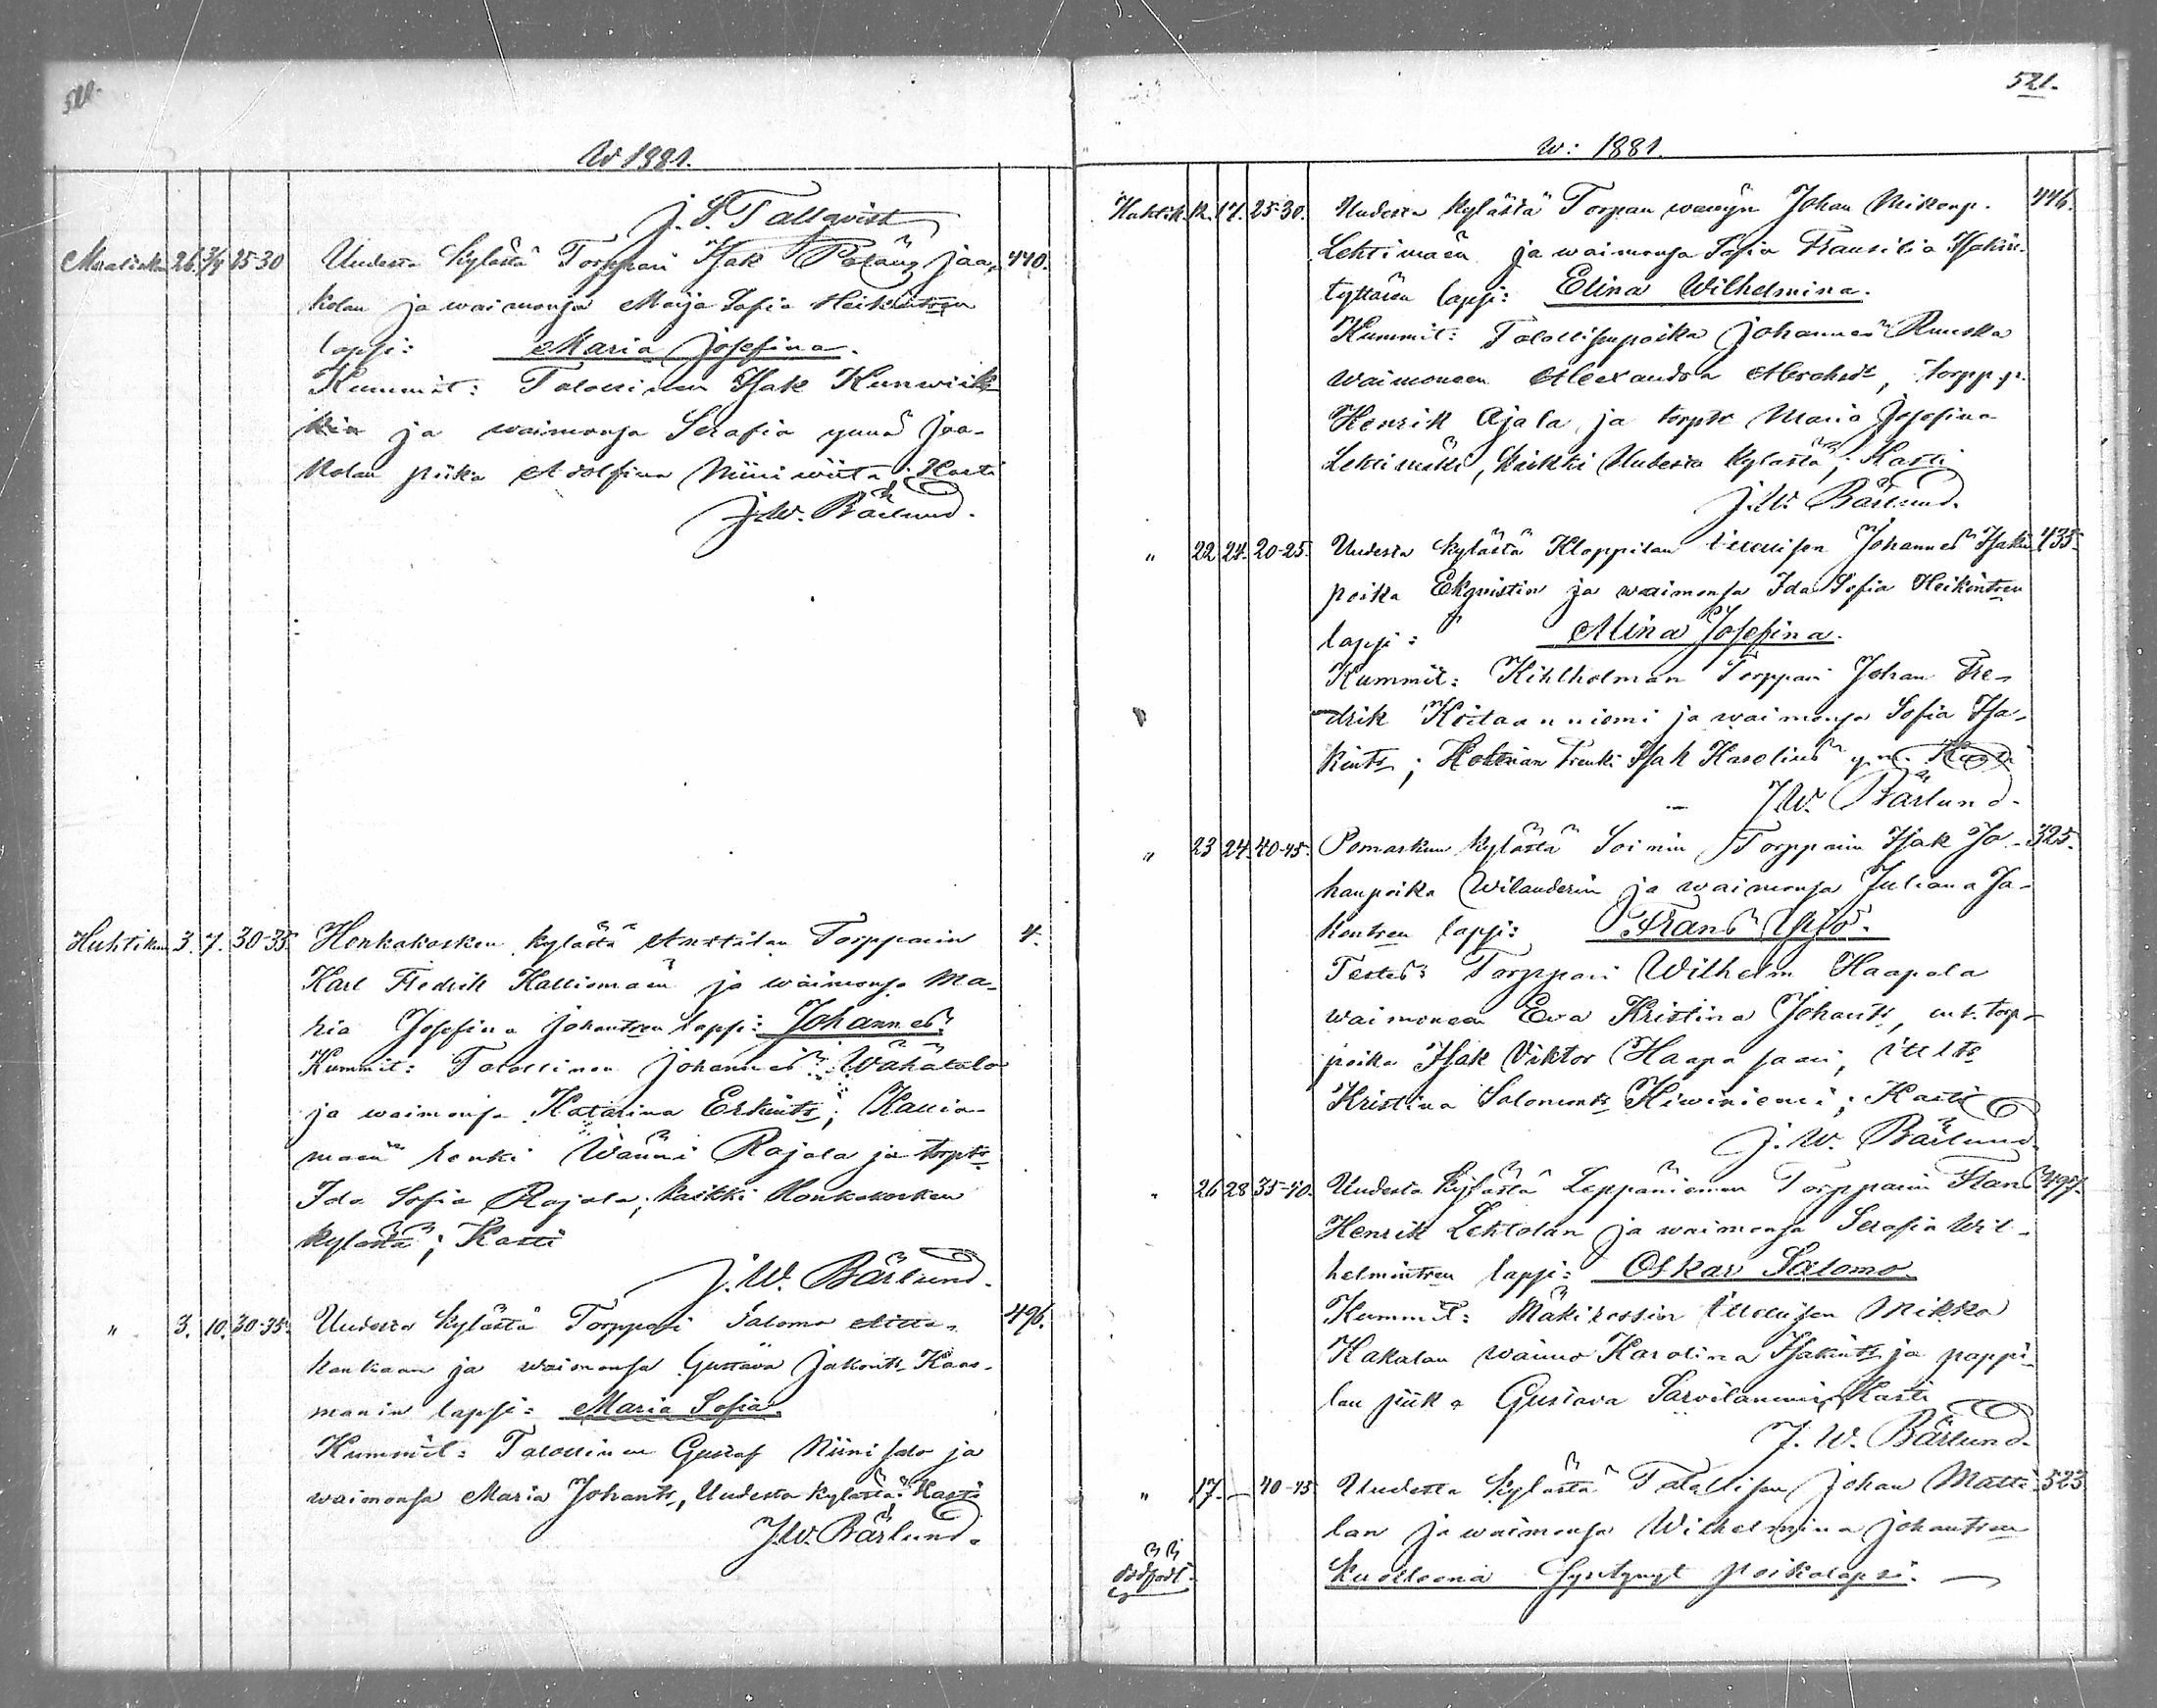 520.
W 1881.
J. S. Tallqvist
Maalisk. 26. 2/4 25-30 Uudesta kylästä Torppari Isak Jaa- 440.
kolan ja waimonsa Maija Sofia Heikintren
lapsi: Maria Josefina.
Kummit: Talollinen Isak
kin ja waimonsa Serafia ynnä Jaa-
kolan piika Adolfina Niiniwiita; Kasti
J. W. Bärlund.
Huhtikuu 3. 7. 30-35. Honkakosken kylästä Anttilan Torpparin 4.
Karl Fredrik Kalliomäen ja waimonsa Ma-
ria Josefina Johantren lapsi: Johannes.
Kummit: Talollinen Johannes Wähätalo
ja waimonsa Katarina Erkints; Kallio-
mäen renki Wänni Rajala ja torpts
Ida Sofia Rajala; kaikki Honkakosken
kylästä; Kasti
J. W. Bärlund.
" 3. 10. 30-35. Uudesta kylästä Torppari Salomo 496.
ja waimonsa Gustava Jakonts Kaas-
manin lapsi: Maria Sofia.
Kummit: Talollinen Gustaf Niinisalo ja
waimonsa Maria Johants, Uudesta kylästä; Kasti
J. W. Bärlund.
521.
W: 1881.
Huhtik. 12. 17. 25-30. Uudesta kylästä Torpan Johan Mikonp. 446.
Lehtimäen ja waimonsa Sofia Fransilia Isakin-
tyttären lapsi: Elina Wilhelmina.
Kummit: Talollisenpoika Johannes Ruuska
waimoneen Alexandra, torpp.p.
Henrik Ajala ja torpts Maria Josefina
Lehtimäki, kaikki Uudesta kylästä; Kasti
J. W. Bärlund.
" 22 24. 20-25. Uudesta kylästä Kloppilan Johannes Isakin 435.
poika Ekqvistin ja waimonsa Ida Sofia Heikintren
lapsi: Alina Josefina.
Kummit: Kihlholman Torppari Johan Fre-
drik Koitaanniemi ja waimonsa Sofia Isa-
kints; renki Isak Karelius y.m. Kasti
J. W. Bärlund.
" 23 24. 40-45. Pomarkun kylästä Soinin Torpparin Isak Jo- 325.
hanpoika Wilanderin ja waimonsa Juliana Ja-
kontren lapsi: Frans Yrjö.
Testes: Torppari Wilhelm Haapala
waimoneen Eva Kristina Johants, torp-
poika Isak Viktor Haapasaari,
Kristina Salomonts Hiwiniemi; Kasti
J. W. Bärlund.
" 26 28 35-40. Uudesta kylästä Leppäniemen Torpparin Frans 497.
Henrik Lehtolan ja waimonsa Serafia Wil-
helmintren lapsi: Oskar Salomo.
Kummit: Mäkirossin Mikko
Hakalan waimo Karolina Isakints ja pappi-
lan piika Gustava Sarvilammi; Kasti
J. W. Bärlund.
" 17. — 40-45 Uudesta kylästä Talollisen Johan Matti- 523
lan ja waimonsa Wilhelmina Johantren
dödfödt. kuolleena syntynyt poikalapsi. —